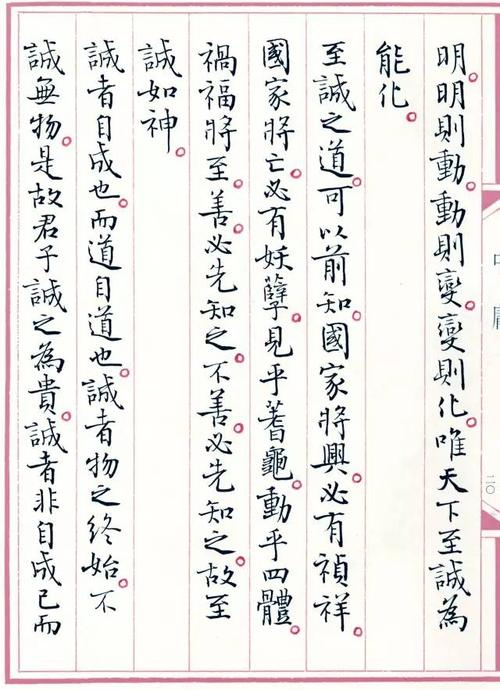 明。明則動。動則變。變則化。唯天下至誠為
能化。
至誠之道可以前知。國家將興。必有禎祥。
國家將亡。必有妖孽。見乎蓍龜。動乎四體。
禍福將至。善。必先知之。不善。必先知之。故至
誠如神。
誠者自成也。而道自道也。誠者物之終始。不
誠無物。是故君子誠之為貴。誠者非自成己而
二〇